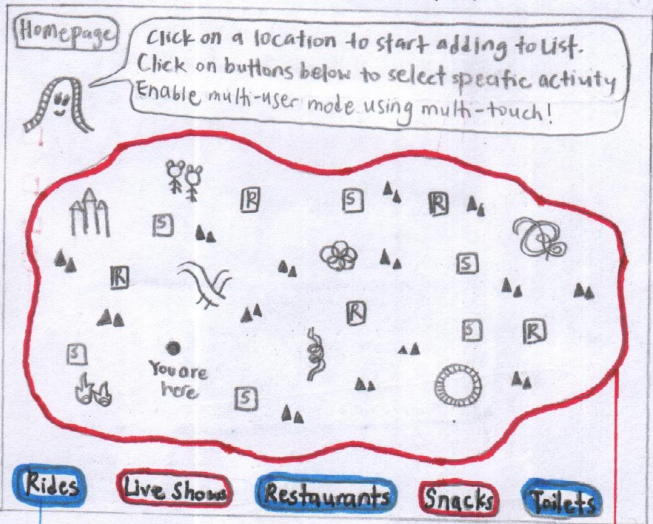 Homepage
Click on a location to start adding to List.
Click on buttons below to select specific activity
Enable multi-user mode using multi-touch!
R
S
R
S
S
R
R
S
R
S
You are
here
S
Rides
Live Shows
Restaurants
Snacks
Toilets